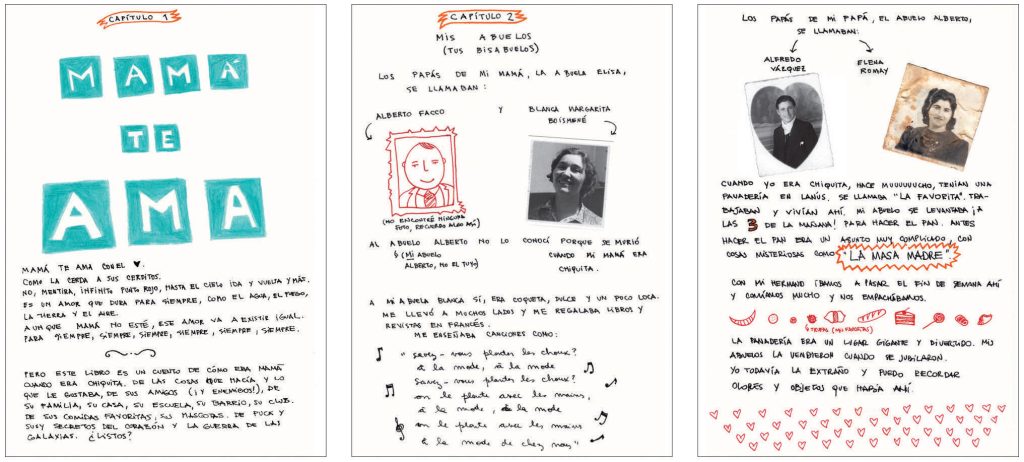 CAPÍTULO 1
MAMÁ
TE
AMA
MAMÁ TE AMA CON EL ♥.
COMO LA CERDA A SUS CERDITOS.
NO, MENTIRA, INFINITO PUNTO ROJO, HASTA EL CIELO IDA Y VUELTA Y MÁS.
ES UN AMOR QUE DURA PARA SIEMPRE, COMO EL AGUA, EL FUEGO,
LA TIERRA Y EL AIRE.
AUNQUE MAMÁ NO ESTÉ, ESE AMOR VA A EXISTIR IGUAL.
PARA SIEMPRE, SIEMPRE, SIEMPRE, SIEMPRE, SIEMPRE, SIEMPRE.
PERO ESTE LIBRO ES UN CUENTO DE CÓMO ERA MAMÁ
CUANDO ERA CHIQUITA. DE LAS COSAS QUE HACÍA Y LO
QUE LE GUSTABA, DE SUS AMIGOS (¡Y ENEMIGOS!), DE
SU FAMILIA, SU CASA, SU ESCUELA, SU BARRIO, SU CLUB.
DE SUS COMIDAS FAVORITAS, SUS MASCOTAS. DE PUCK Y
SUSY SECRETOS DEL CORAZÓN Y LA GUERRA DE LAS
GALAXIAS. ¿LISTOS?
CAPÍTULO 2
MIS ABUELOS
(TUS BISABUELOS)
LOS PAPÁS DE MI MAMÁ, LA ABUELA ELISA,
SE LLAMABAN:
ALBERTO FACCO Y BLANCA MARGARITA
BOISMENÉ
(NO ENCONTRÉ NINGUNA
FOTO, RECUERDO ALGO ASÍ)
AL ABUELO ALBERTO NO LO CONOCÍ PORQUE SE MURIÓ
(MI ABUELO
ALBERTO, NO EL TUYO)
CUANDO MI MAMÁ ERA
CHIQUITA.
A MI ABUELA BLANCA SÍ, ERA COQUETA, DULCE Y UN POCO LOCA.
ME LLEVÓ A MUCHOS LADOS Y ME REGALABA LIBROS Y
REVISTAS EN FRANCÉS.
ME ENSEÑABA CANCIONES COMO:
"Savez-vous planter les choux?
à la mode, à la mode
Savez-vous planter les choux?
on le plante avec les mains,
à la mode, à la mode
on le plante avec les mains
à la mode de chez nous"
LOS PAPÁS DE MI PAPÁ, EL ABUELO ALBERTO,
SE LLAMABAN:
ALFREDO
VÁZQUEZ
ELENA
ROMAY
CUANDO YO ERA CHIQUITA, HACE MUUUUUUCHO, TENÍAN UNA
PANADERÍA EN LANÚS. SE LLAMABA "LA FAVORITA". TRA-
BAJABAN Y VIVÍAN AHÍ. MI ABUELO SE LEVANTABA ¡A
LAS 3 DE LA MAÑANA! PARA HACER EL PAN. ANTES
HACER EL PAN ERA UN ASUNTO MUY COMPLICADO, CON
COSAS MISTERIOSAS COMO "LA MASA MADRE".
CON MI HERMANO ÍBAMOS A PASAR EL FIN DE SEMANA AHÍ
Y COMÍAMOS MUCHO Y NOS EMPACHÁBAMOS.
(MIS FAVORITAS)
LA PANADERÍA ERA UN LUGAR GIGANTE Y DIVERTIDO. MIS
ABUELOS LA VENDIERON CUANDO SE JUBILARON.
YO TODAVÍA LA EXTRAÑO Y PUEDO RECORDAR
OLORES Y OBJETOS QUE HABÍA AHÍ.